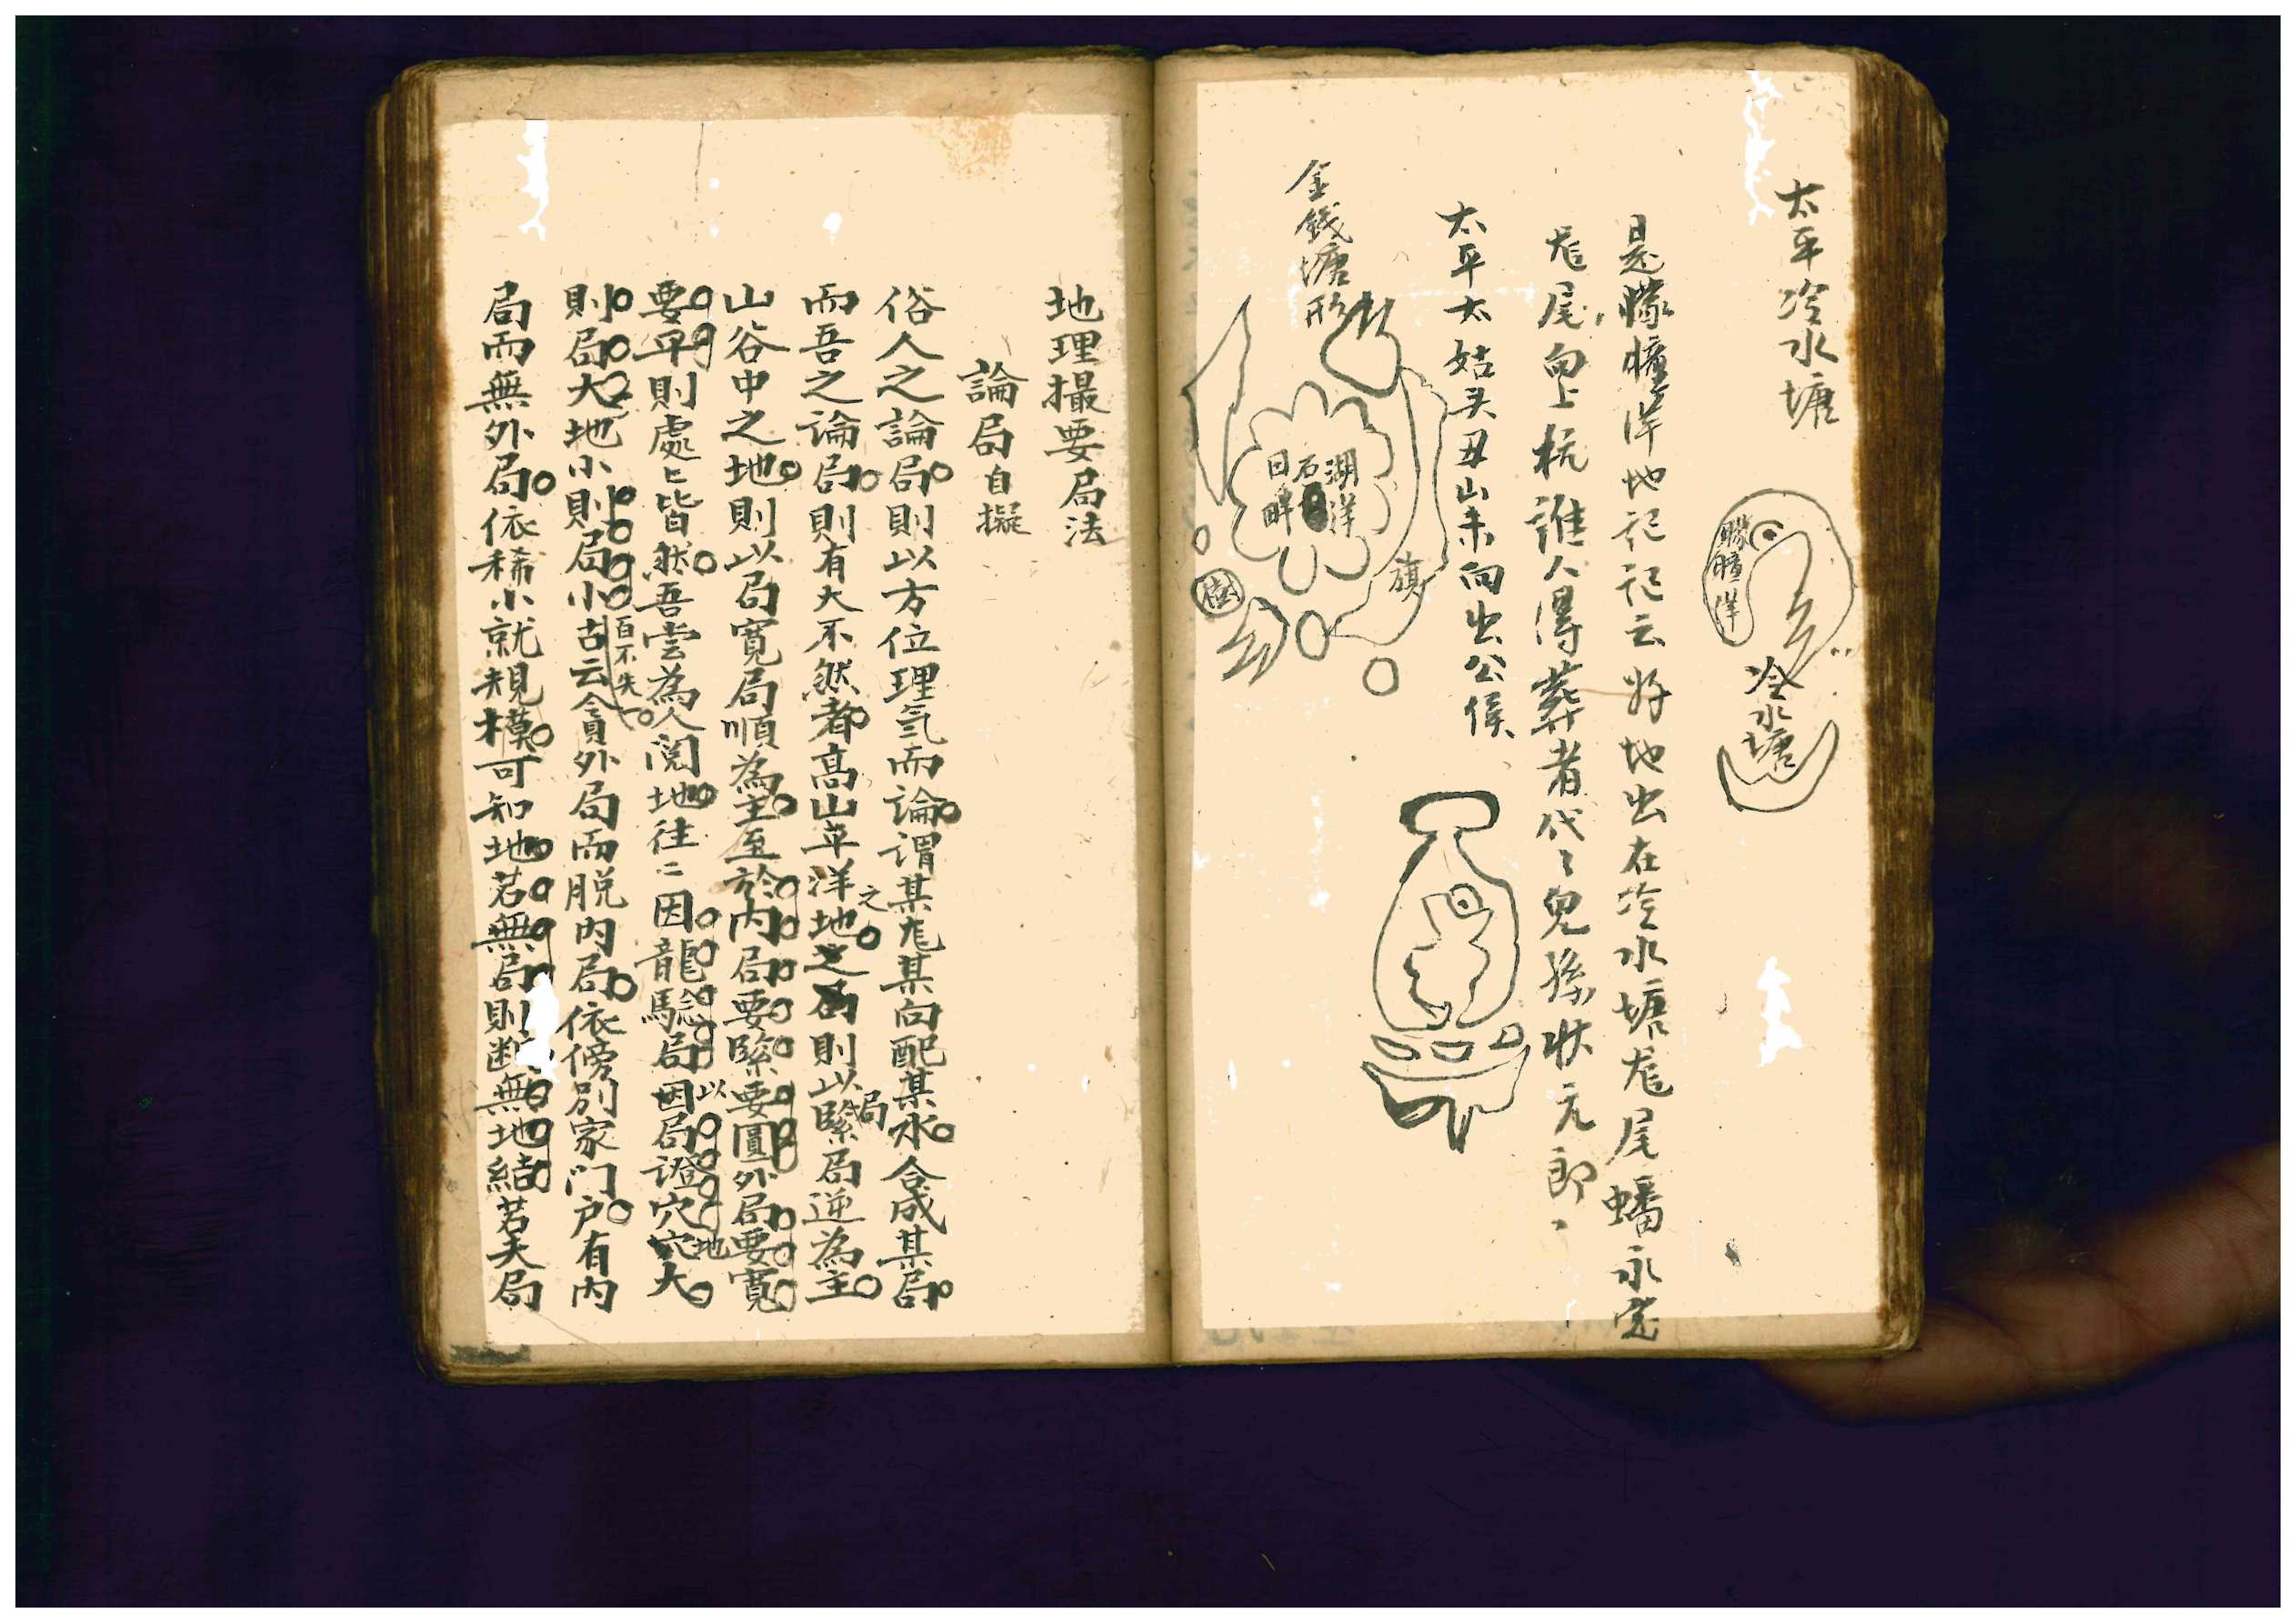 太平冷水塘
冷水塘
是朦朣洋地記記云好地出在冷水塘尨尾蟠永定
尨尾向上杭誰人得葬者代々兒孫狀元郎
太平太姑头丑山未向出公侯
金錢塘形
湖洋
石
日畔
旗
地理撮要局法
論局自擬
俗人之論局則以方位理氣而論謂某尨某向配某水合成某局
而吾之論局則有大不然者高山平洋之地則以緊局局逆為主
山谷中之地則以局寬局順為主至於內局要緊要圓外局要寬
要平則處〻皆然吾嘗為人閱地往〻因龍驗局以局證穴地大
則局大地小則局小百不失一古云貪外局而脱內局依傍別家门户有內
局而無外局依稀小就規模可知地若無局則断無地結若夫局